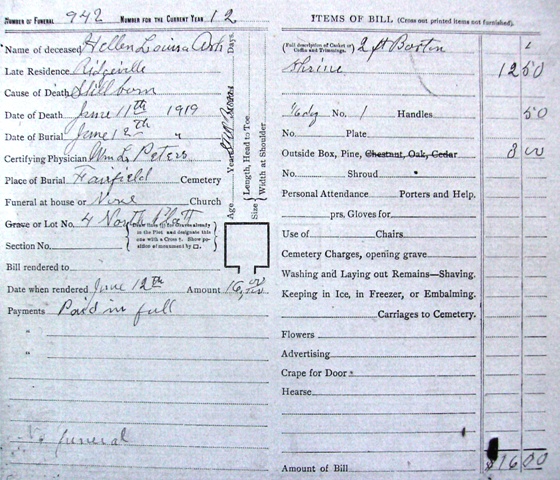 NUMBER OF FUNERAL 942 NUMBER FOR THE CURRENT YEAR 12
Name of deceased Hellen Louisa Ash
Late Residence Ridgeville
Cause of Death Stillborn
Date of Death June 11th 1919
Date of Burial June 12th "
Certifying Physician Wm L. Peters
Place of Burial Fairfield Cemetery
Funeral at house or None Church
Grave or Lot No. 4 North Platt
Section No.
Draw lines for Graves already in the Plot and designate this one with a Cross †. Show position of monument by □.
Bill rendered to
Date when rendered June 12th Amount 16.00
Payments Paid in full
"
"
No funeral
Age Years Days
Size Length, Head to Toe. Width at Shoulder.
Stillborn
ITEMS OF BILL (Cross out printed items not furnished).
(Full description of Casket or Coffin and Trimmings. 2 ft Boston
Shrine 12 50
1/6 dg No. 1 Handles 50
No. Plate
Outside Box, Pine, Chestnut, Oak, Cedar 3 00
No. Shroud
Personal Attendance Porters and Help.
prs. Gloves for
Use of Chairs.
Cemetery Charges, opening grave
Washing and Laying out Remains—Shaving.
Keeping in Ice, in Freezer, or Embalming.
Carriages to Cemetery.
Flowers
Advertising
Crape for Door
Hearse
Amount of Bill $16 00